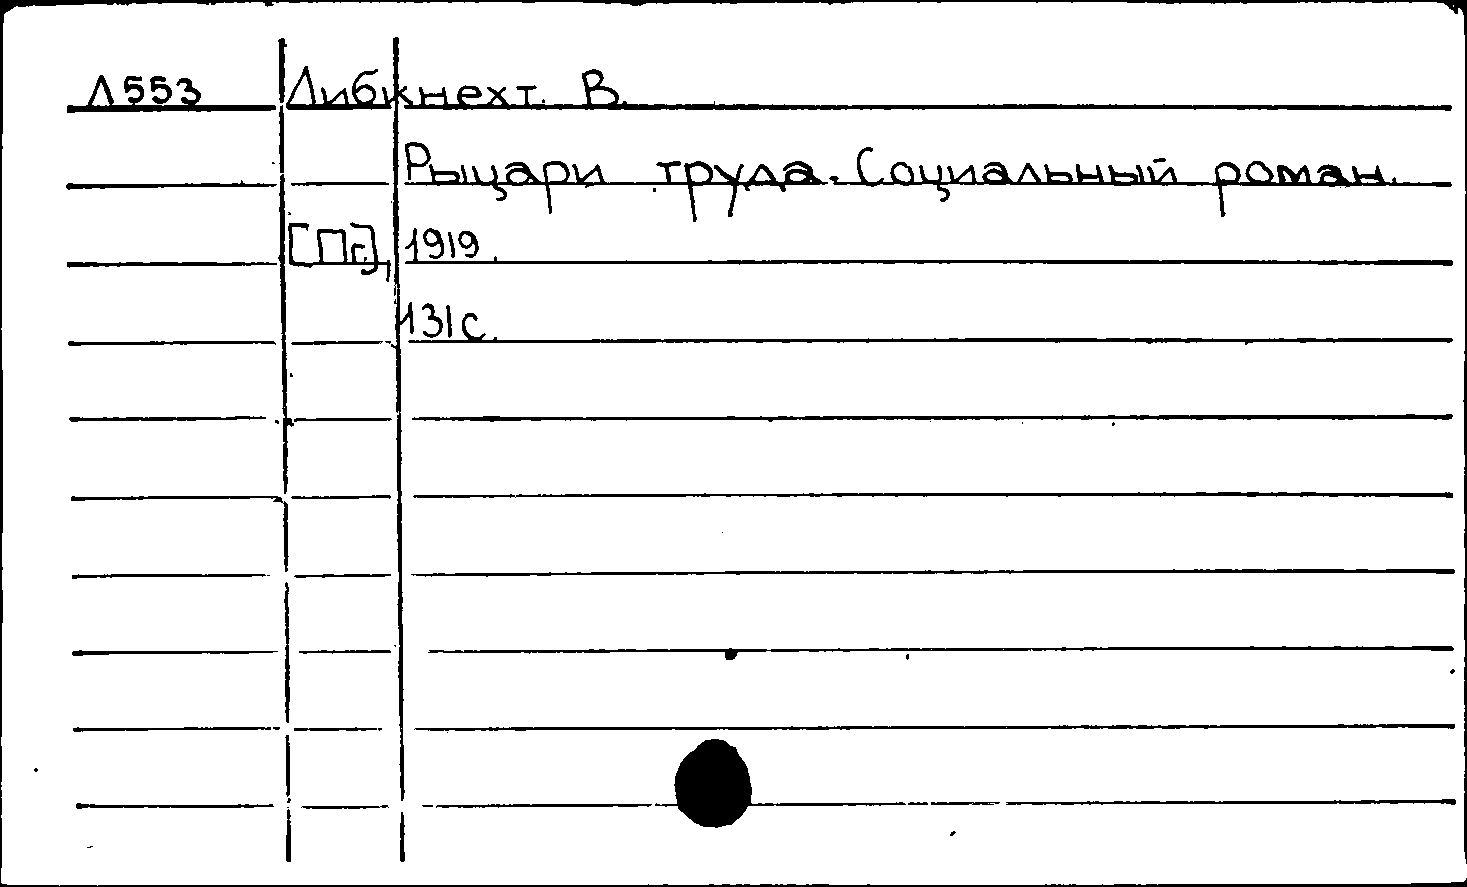 Л553 Либкнехт. В.
Рыцари труда. Социальный роман.
[Пг.], 1919.
131с.